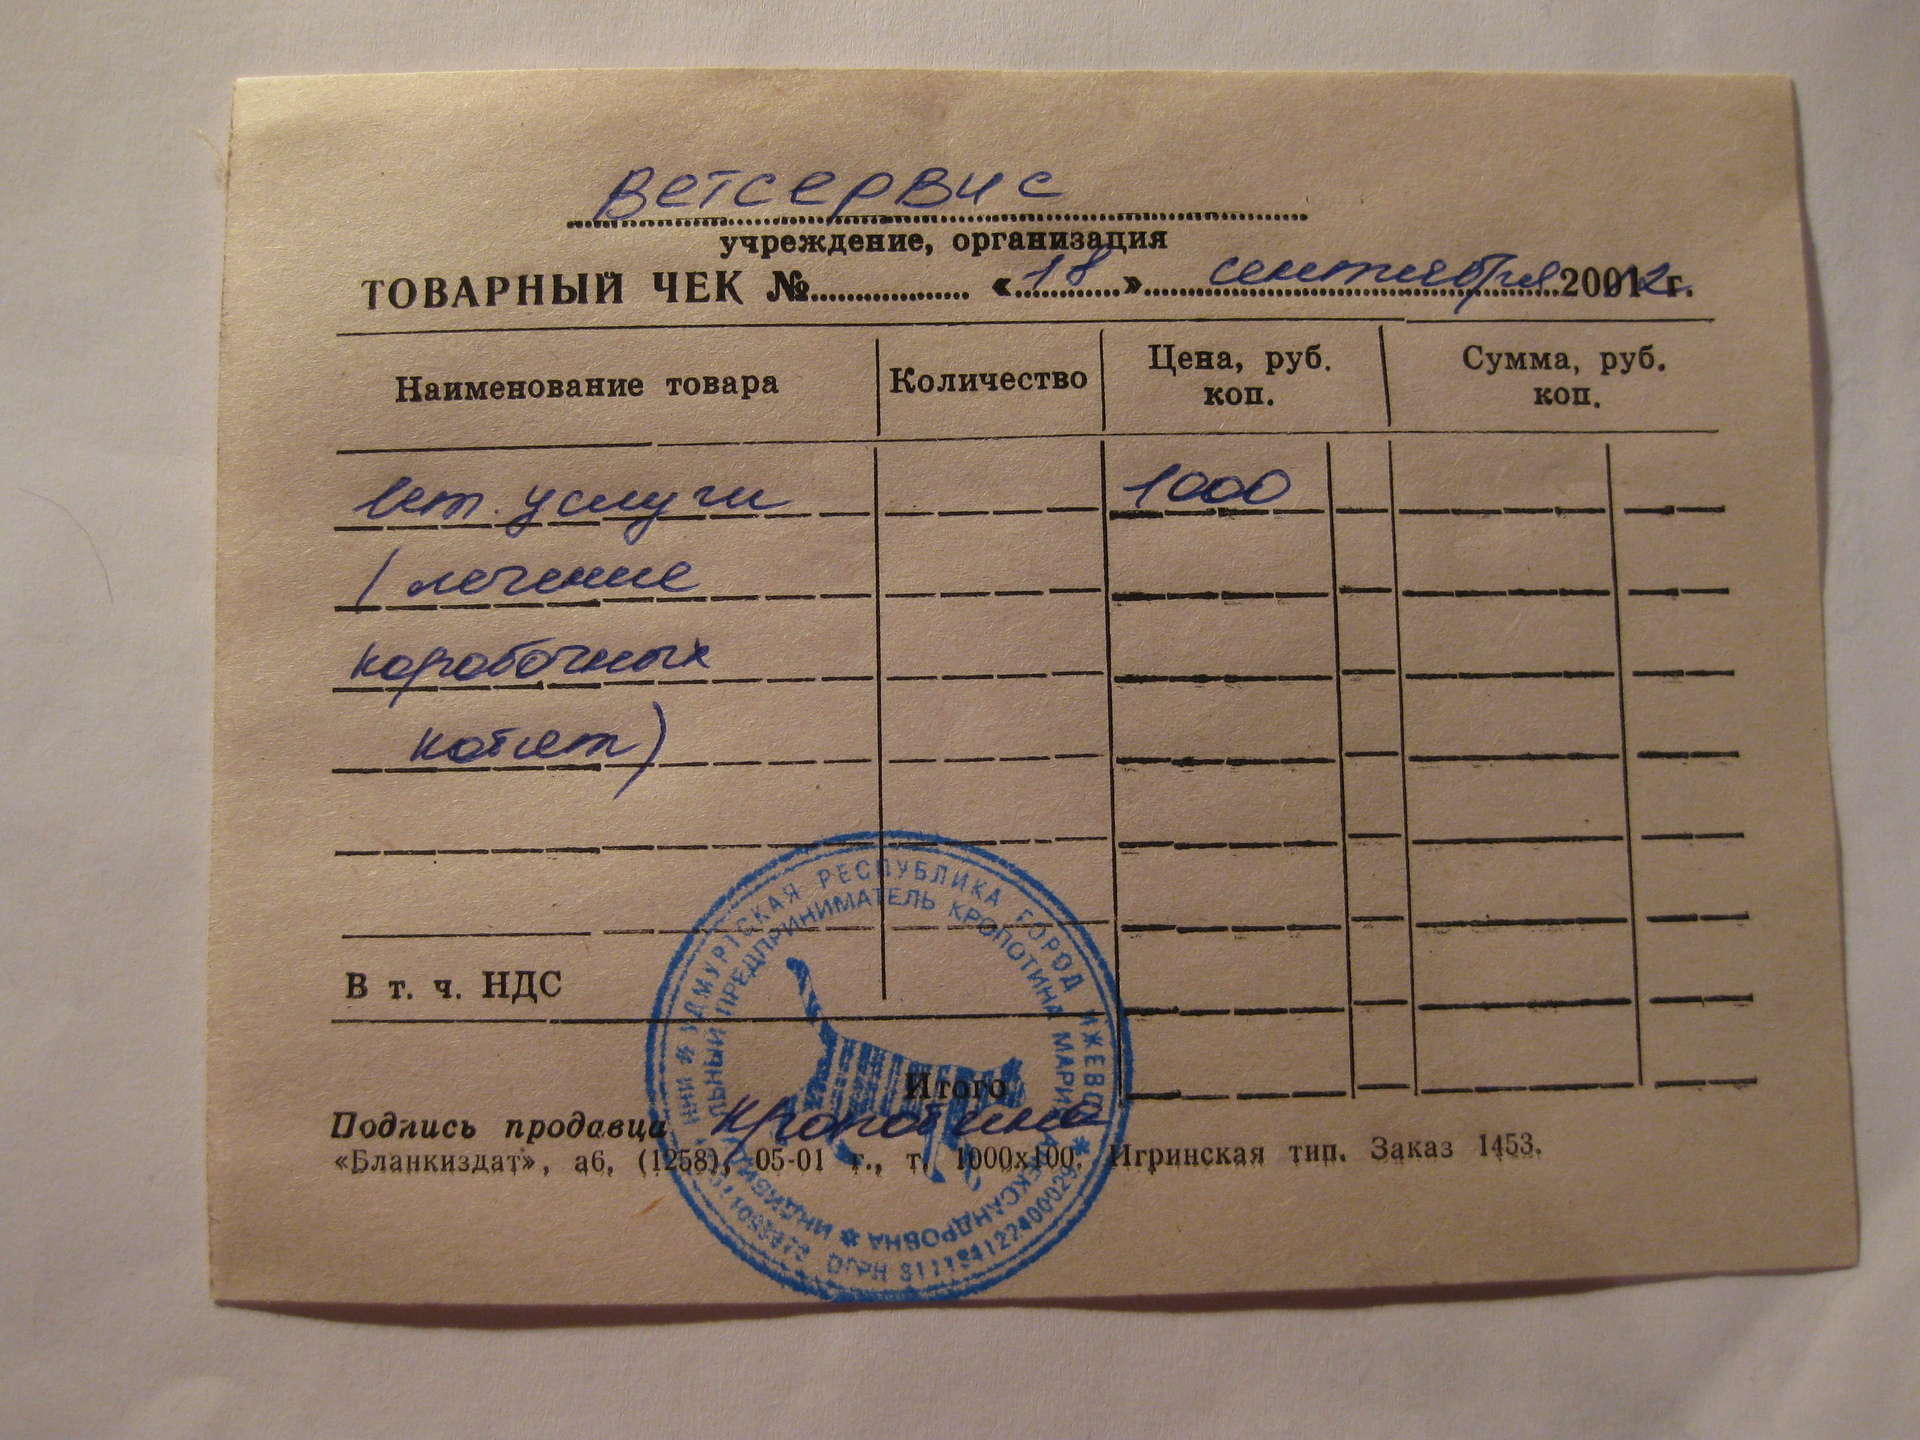 Ветсервис
учреждение, организация
ТОВАРНЫЙ ЧЕК № «18» сентября 2012 г.
Наименование товара Количество Цена, руб. коп. Сумма, руб. коп.
вет. услуги 1000
(лечение
коробочных
котят)
В т. ч. НДС
Итого
Подпись продавца Кропотина
«Бланкиздат», а6, (1258), 05-01 г., т. 1000х100. Игринская тип. Заказ 1453.
УДМУРТСКАЯ РЕСПУБЛИКА ГОРОД ИЖЕВСК
ИНДИВИДУАЛЬНЫЙ ПРЕДПРИНИМАТЕЛЬ КРОПОТИНА МАРИЯ АЛЕКСАНДРОВНА
ОГРН